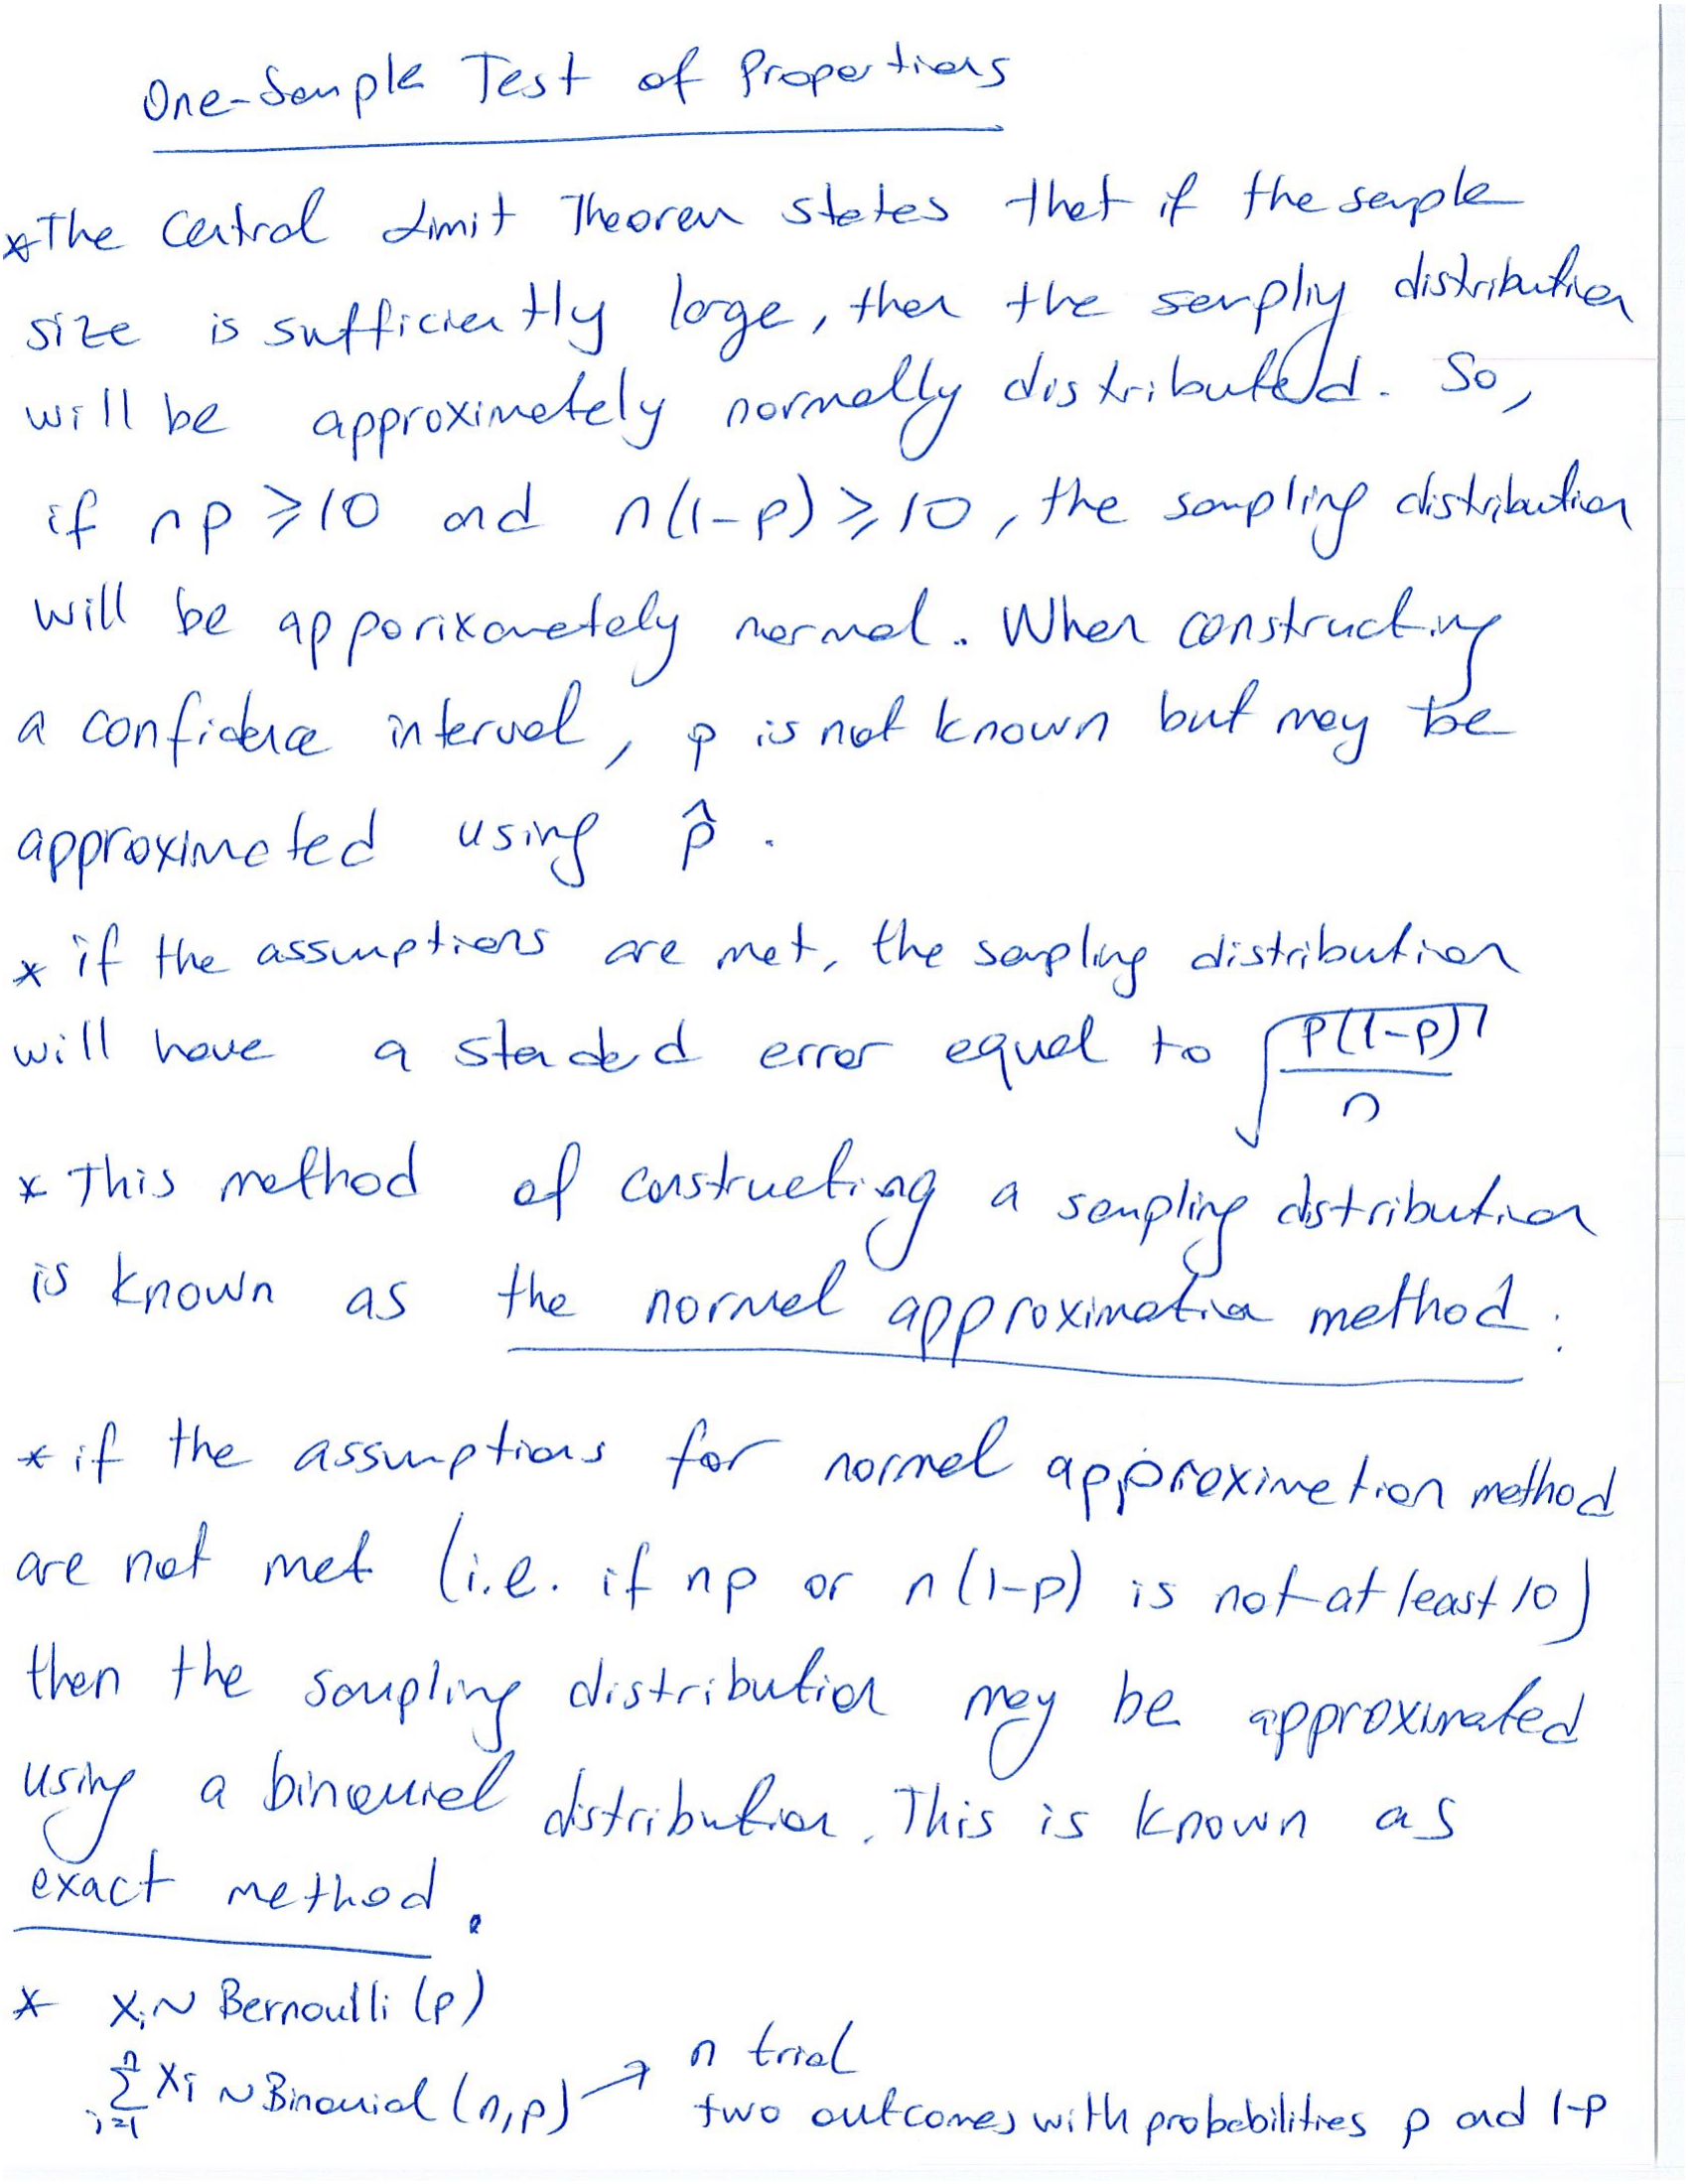 One-Sample Test of Proportions
*The Central Limit Theorem states that if the sample
size is sufficiently large, then the sampling distribution
will be approximately normally distributed. So,
if np ≥ 10 and n(1-p) ≥ 10, the sampling distribution
will be apporixametely normal. When constructing
a confidence interval, p is not known but may be
approximated using p̂.
* if the assumptions are met, the sampling distribution
will have a standard error equal to √(p(1-p)/n)
* This method of constructing a sampling distribution
is known as the normal approximation method.
* if the assumptions for normal approximation method
are not met (i.e. if np or n(1-p) is not at least 10)
then the sampling distribution may be approximated
using a binomial distribution. This is known as
exact method.
* Xi ~ Bernoulli (p)
n trial
∑ⁿᵢ₌₁ Xi ~ Binomial (n,p) → two outcomes with probabilities p and 1-p